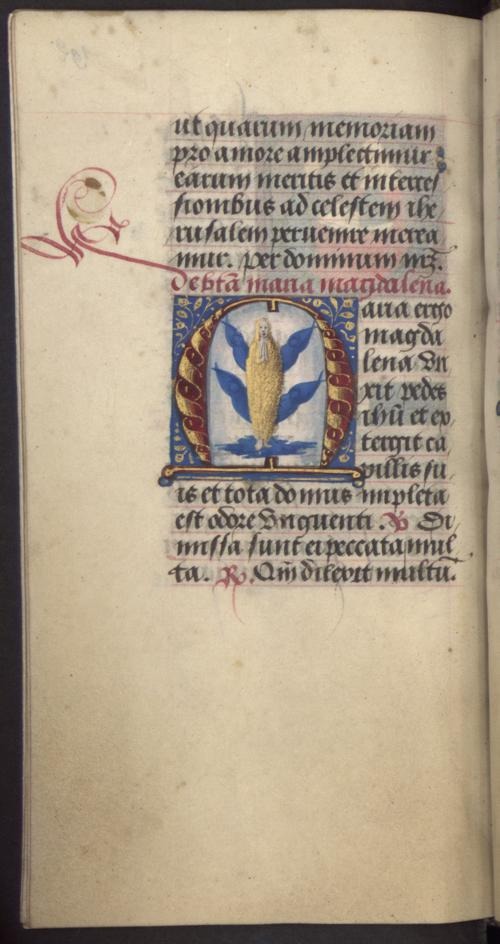 ut quarum memoriam
pro amore amplectimur
earum meritis et interces
sionibus ad celestem ihe
rusalem peruenire merea
mur. per dominum nr̄z.
De bt̄a maria magdalena.
Maria ergo
magda
lena vn
xit pedes
ihū et ex
tergit ca
pillis su
is et tota domus impleta
est odore vnguenti. ℣ Di
missa sunt ei peccata mul
ta. ℟. Qm̄ dilexit multū.